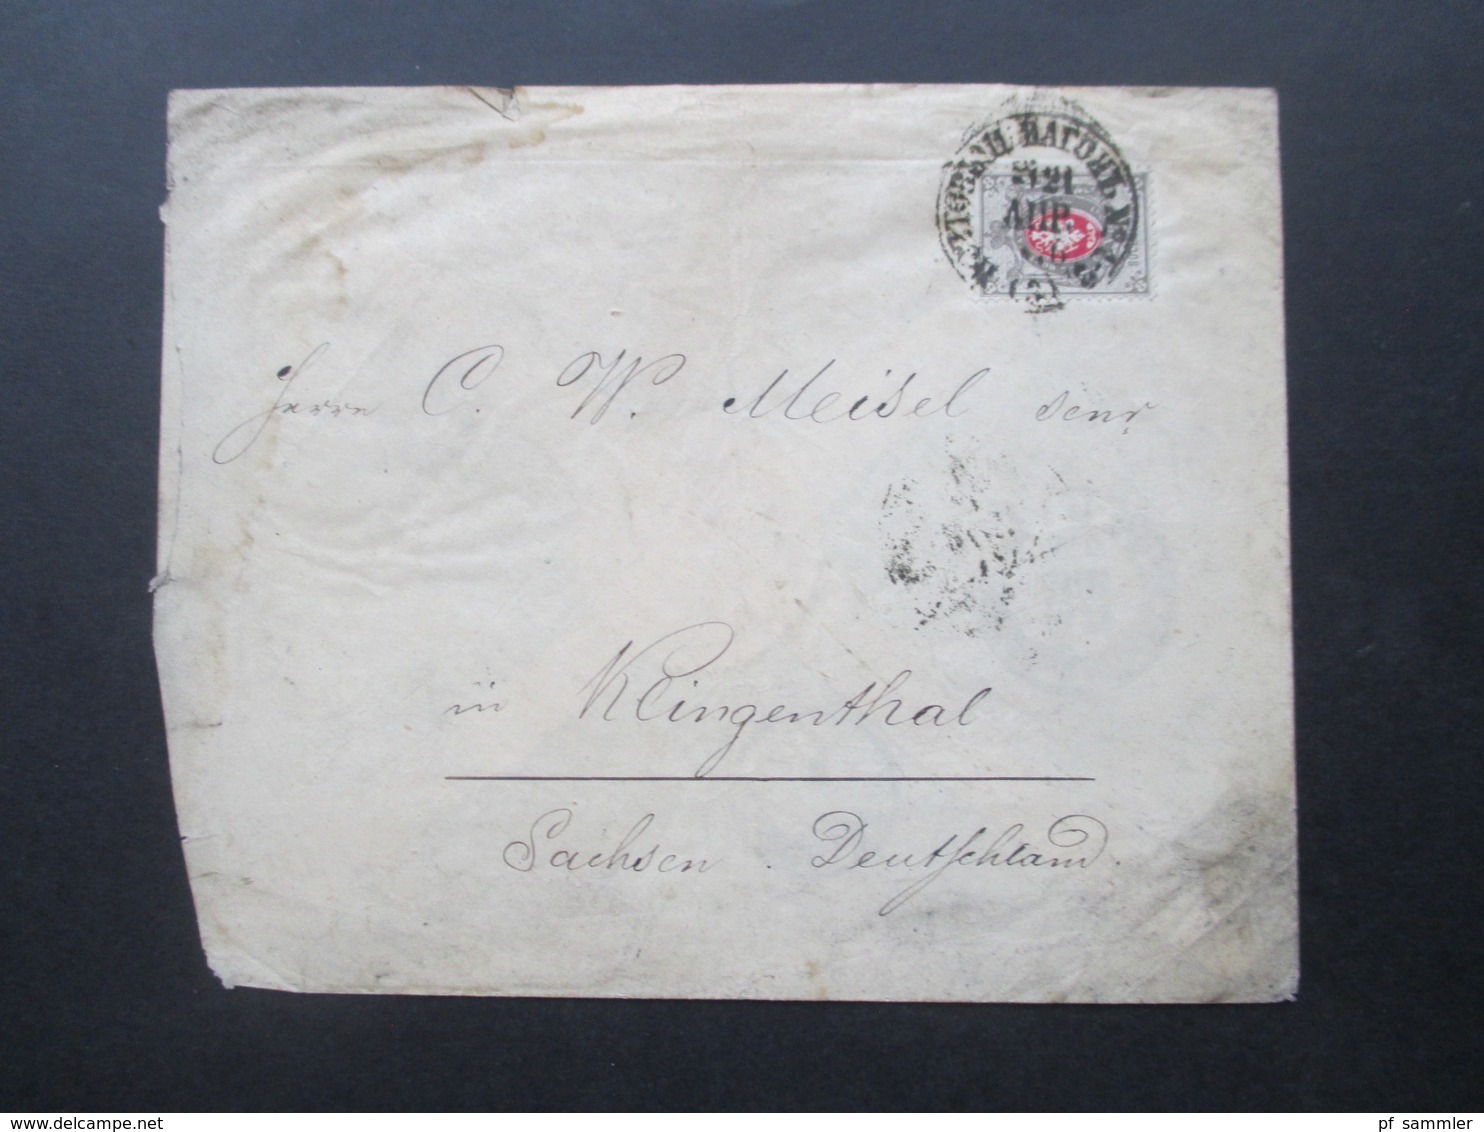 ПОЧТОВЫЙ ВАГОНЪ №
21
АПР.
(3)
Herrn C. W. Meisel senr
in Klingenthal
Sachsen. Deutschland.
pf_sammler